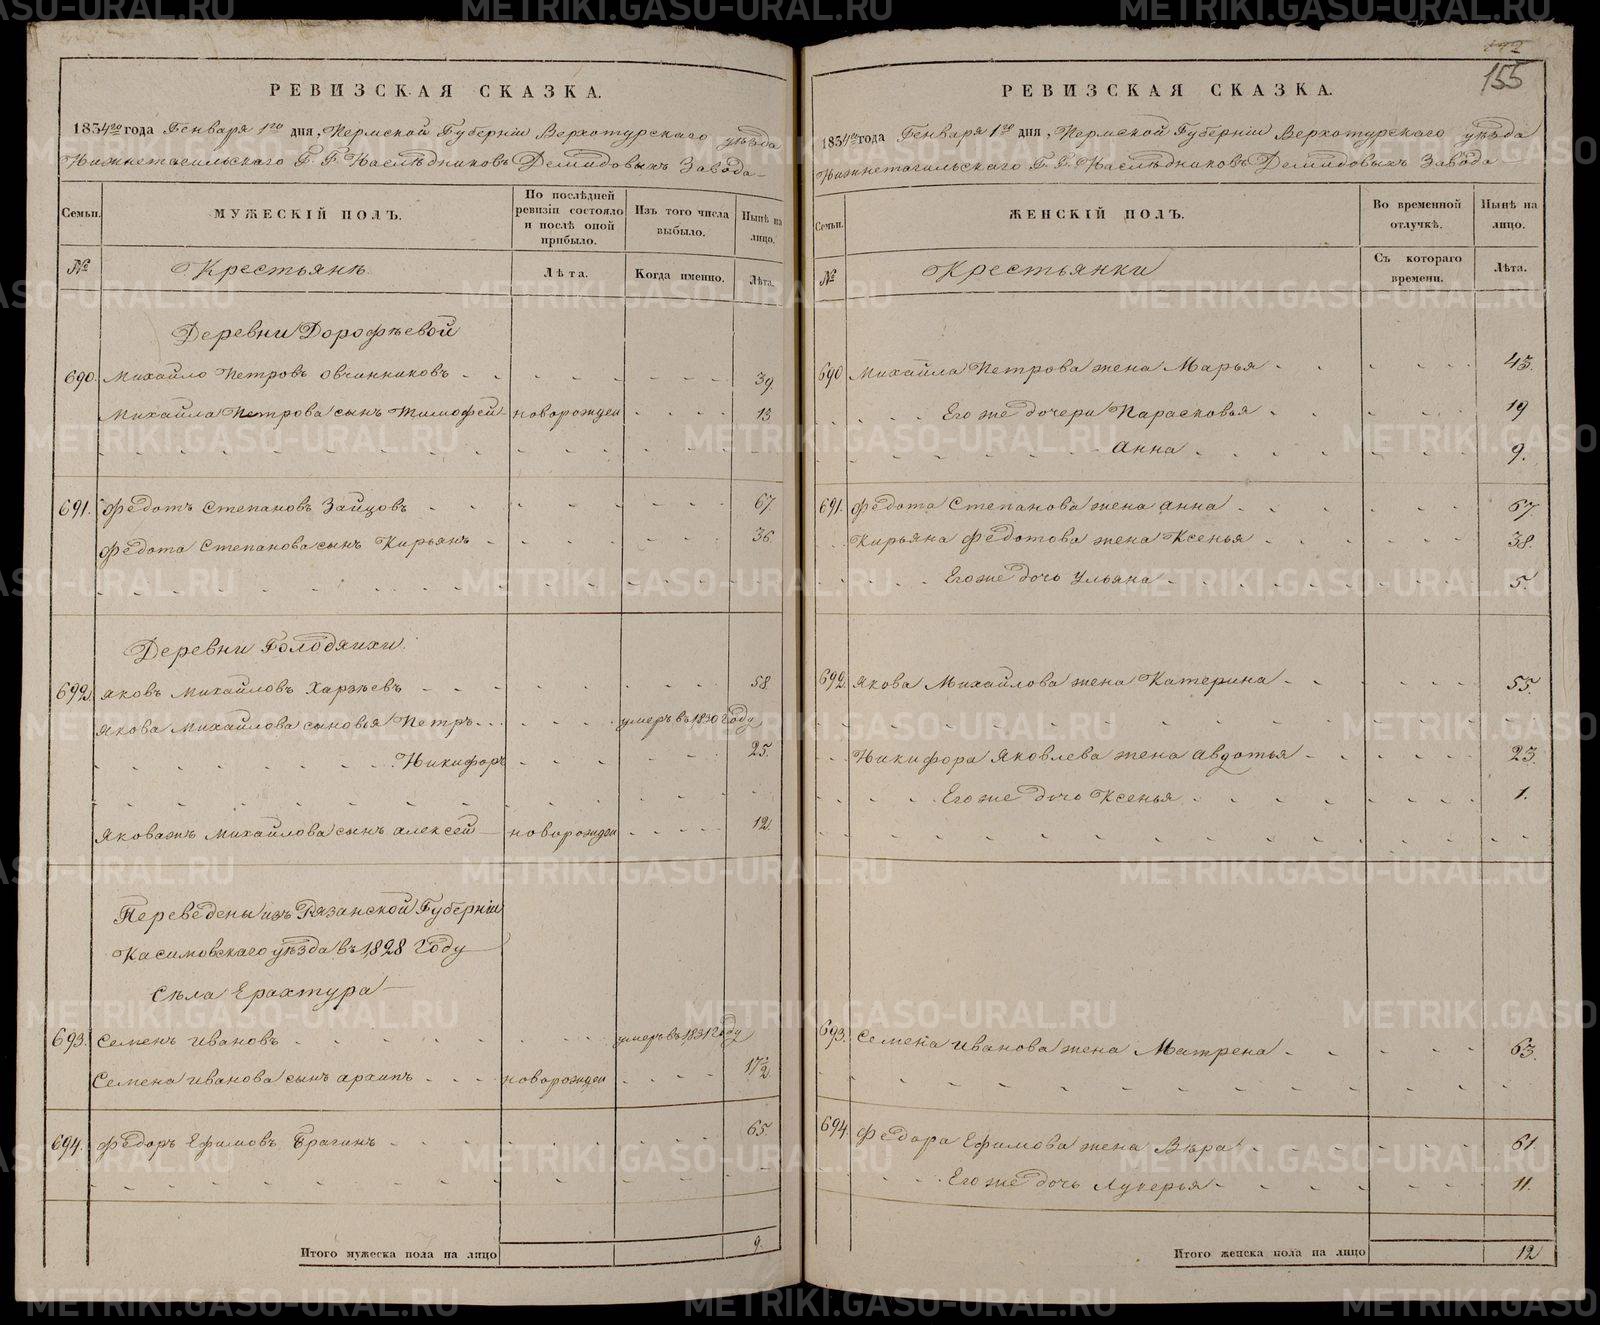 РЕВИЗСКАЯ СКАЗКА.
1834го года Генваря 1го дня, Пермской Губерніи Верхотурскаго уѣзда
Нижнетагильскаго Г. Г. Наслѣдниковъ Демидовыхъ Завода
Семьи.
МУЖЕСКІЙ ПОЛЪ.
По послѣдней ревизіи состояло и послѣ оной прибыло.
Изъ того числа выбыло.
Нынѣ на лицо.
№
Крестьянъ
Лѣта.
Когда именно.
Лѣта.
Деревни Дорофѣевой
690. Михайло Петровъ Овчинниковъ 39
Михайла Петрова сынъ Тимофей новорожден 13
691. Федотъ Степановъ Зайцовъ 67.
Федота Степанова сынъ Кирьянъ 36.
Деревни Голодяихи
692. Яковъ Михайловъ Харзѣевъ 58
Якова Михайлова сыновья Петръ умеръ въ 1830 году
Никифоръ 25.
Якова жъ Михайлова сынъ Алексей новорожден 12.
Переведены изъ Рязанской Губерніи
Касимовскаго уѣзда въ 1828 году
Сѣла Ерахтура
693. Семенъ Ивановъ умеръ въ 1831 году
Семена Иванова сынъ Архипъ новорожден 17½
694. Федоръ Ефимовъ Брагинъ 65.
Итого мужеска пола на лицо 9.
155
РЕВИЗСКАЯ СКАЗКА.
1834го года Генваря 1го дня, Пермской Губерніи Верхотурскаго уѣзда
Нижнетагильскаго Г. Г. Наслѣдниковъ Демидовыхъ Завода
Семьи.
ЖЕНСКІЙ ПОЛЪ.
Во временной отлучкѣ.
Нынѣ на лицо.
№
Крестьянки
Съ котораго времени.
Лѣта.
690 Михайла Петрова жена Марья 43.
Его же дочери Парасковья 19
Анна 9.
691. Федота Степанова жена Анна 67.
Кирьяна Федотова жена Ксенья 38.
Его же дочь Ульяна 5.
692. Якова Михайлова жена Катерина 55.
Никифора Яковлева жена Авдотья 23.
Его же дочь Ксенья 1.
693. Семена Иванова жена Матрена 63.
694 Федора Ефимова жена Вѣра 61.
Его же дочь Лукерья 11.
Итого женска пола на лицо 12
METRIKI.GASO-URAL.RU